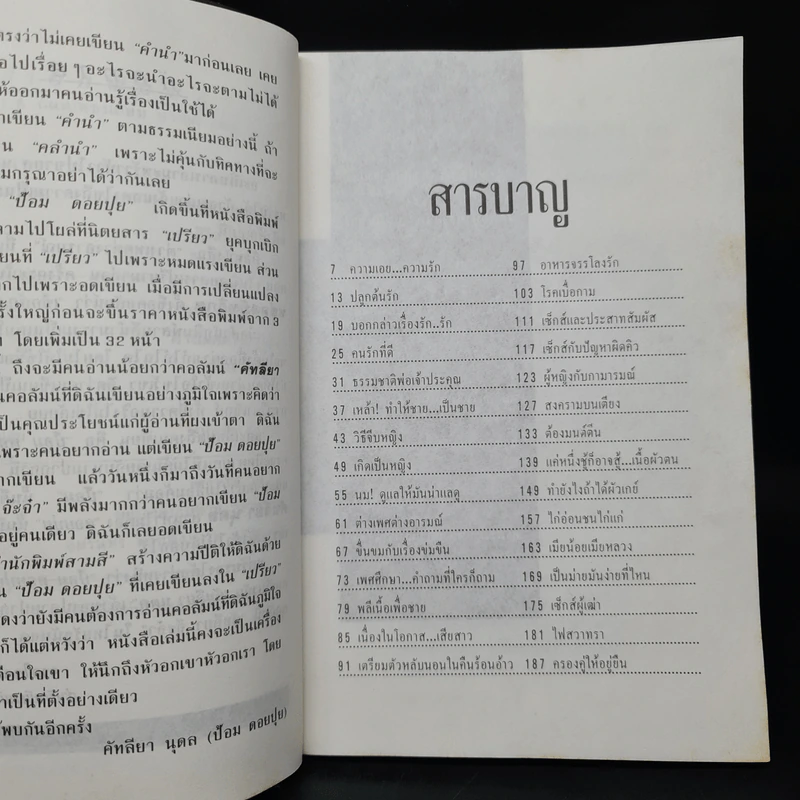 ตรงว่าไม่เคยเขียน “คำนำ”มาก่อนเลย เคย
อไปเรื่อย ๆ อะไรจะนำอะไรจะตามไม่ได้
ห้ออกมาคนอ่านรู้เรื่องเป็นใช้ได้
าเขียน “คำนำ” ตามธรรมเนียมอย่างนี้ ถ้า
น “คลำนำ” เพราะไม่คุ้นกับทิศทางที่จะ
มกรุณาอย่าได้ว่ากันเลย
“ป้อม ดอยปุย” เกิดขึ้นที่หนังสือพิมพ์
ตามไปโผล่ที่นิตยสาร “เปรียว” ยุคบุกเบิก
ยนที่ “เปรียว” ไปเพราะหมดแรงเขียน ส่วน
กไปเพราะอดเขียน เมื่อมีการเปลี่ยนแปลง
รั้งใหญ่ก่อนจะขึ้นราคาหนังสือพิมพ์จาก 3
โดยเพิ่มเป็น 32 หน้า
ถึงจะมีคนอ่านน้อยกว่าคอลัมน์ “คัทลียา
นคอลัมน์ที่ดิฉันเขียนอย่างภูมิใจเพราะคิดว่า
เป็นคุณประโยชน์แก่ผู้อ่านที่ผงเข้าตา ดิฉัน
เพราะคนอยากอ่าน แต่เขียน “ป้อม ดอยปุย”
ากเขียน แล้ววันหนึ่งก็มาถึงวันที่คนอยาก
จ๊ะจ๋า” มีพลังมากกว่าคนอยากเขียน “ป้อม
อยู่คนเดียว ดิฉันก็เลยอดเขียน
านักพิมพ์สามสี” สร้างความปีติให้ดิฉันด้วย
น “ป้อม ดอยปุย” ที่เคยเขียนลงใน “เปรียว”
ดงว่ายังมีคนต้องการอ่านคอลัมน์ที่ดิฉันภูมิใจ
ก็ได้แต่หวังว่า หนังสือเล่มนี้คงจะเป็นเครื่อง
ตือนใจเขา ให้นึกถึงหัวอกเขาหัวอกเรา โดย
าเป็นที่ตั้งอย่างเดียว
พบกันอีกครั้ง
คัทลียา นุดล (ป้อม ดอยปุย)
สารบาญ
7 ความเอย...ความรัก
13 ปลูกต้นรัก
19 บอกกล่าวเรื่องรัก..รัก
25 คนรักที่ดี
31 ธรรมชาติพ่อเจ้าประคุณ
37 เหล้า! ทำให้ชาย...เป็นชาย
43 วิธีจีบหญิง
49 เกิดเป็นหญิง
55 นม! ดูแลให้มันน่าแลดู
61 ต่างเพศต่างอารมณ์
67 ขื่นขมกับเรื่องข่มขืน
73 เพศศึกษา...คำถามที่ใครก็ถาม
79 พลีเนื้อเพื่อชาย
85 เนื่องในโอกาส...เสียสาว
91 เตรียมตัวหลับนอนในคืนร้อนอ้าว
97 อาหารจรรโลงรัก
103 โรคเบื่อกาม
111 เซ็กส์และประสาทสัมผัส
117 เซ็กส์กับปัญหาผิดคิว
123 ผู้หญิงกับกามารมณ์
127 สงครามบนเตียง
133 ต้องมนต์ตีน
139 แค่หนึ่งชู้ก็อาจสู้...เนื้อผัวตน
149 ทำยังไงถ้าได้ผัวเกย์
157 ไก่อ่อนชนไก่แก่
163 เมียน้อยเมียหลวง
169 เป็นม่ายมันง่ายที่ไหน
175 เซ็กส์ผู้เฒ่า
181 ไฟสวาทรา
187 ครองคู่ให้อยู่ยืน